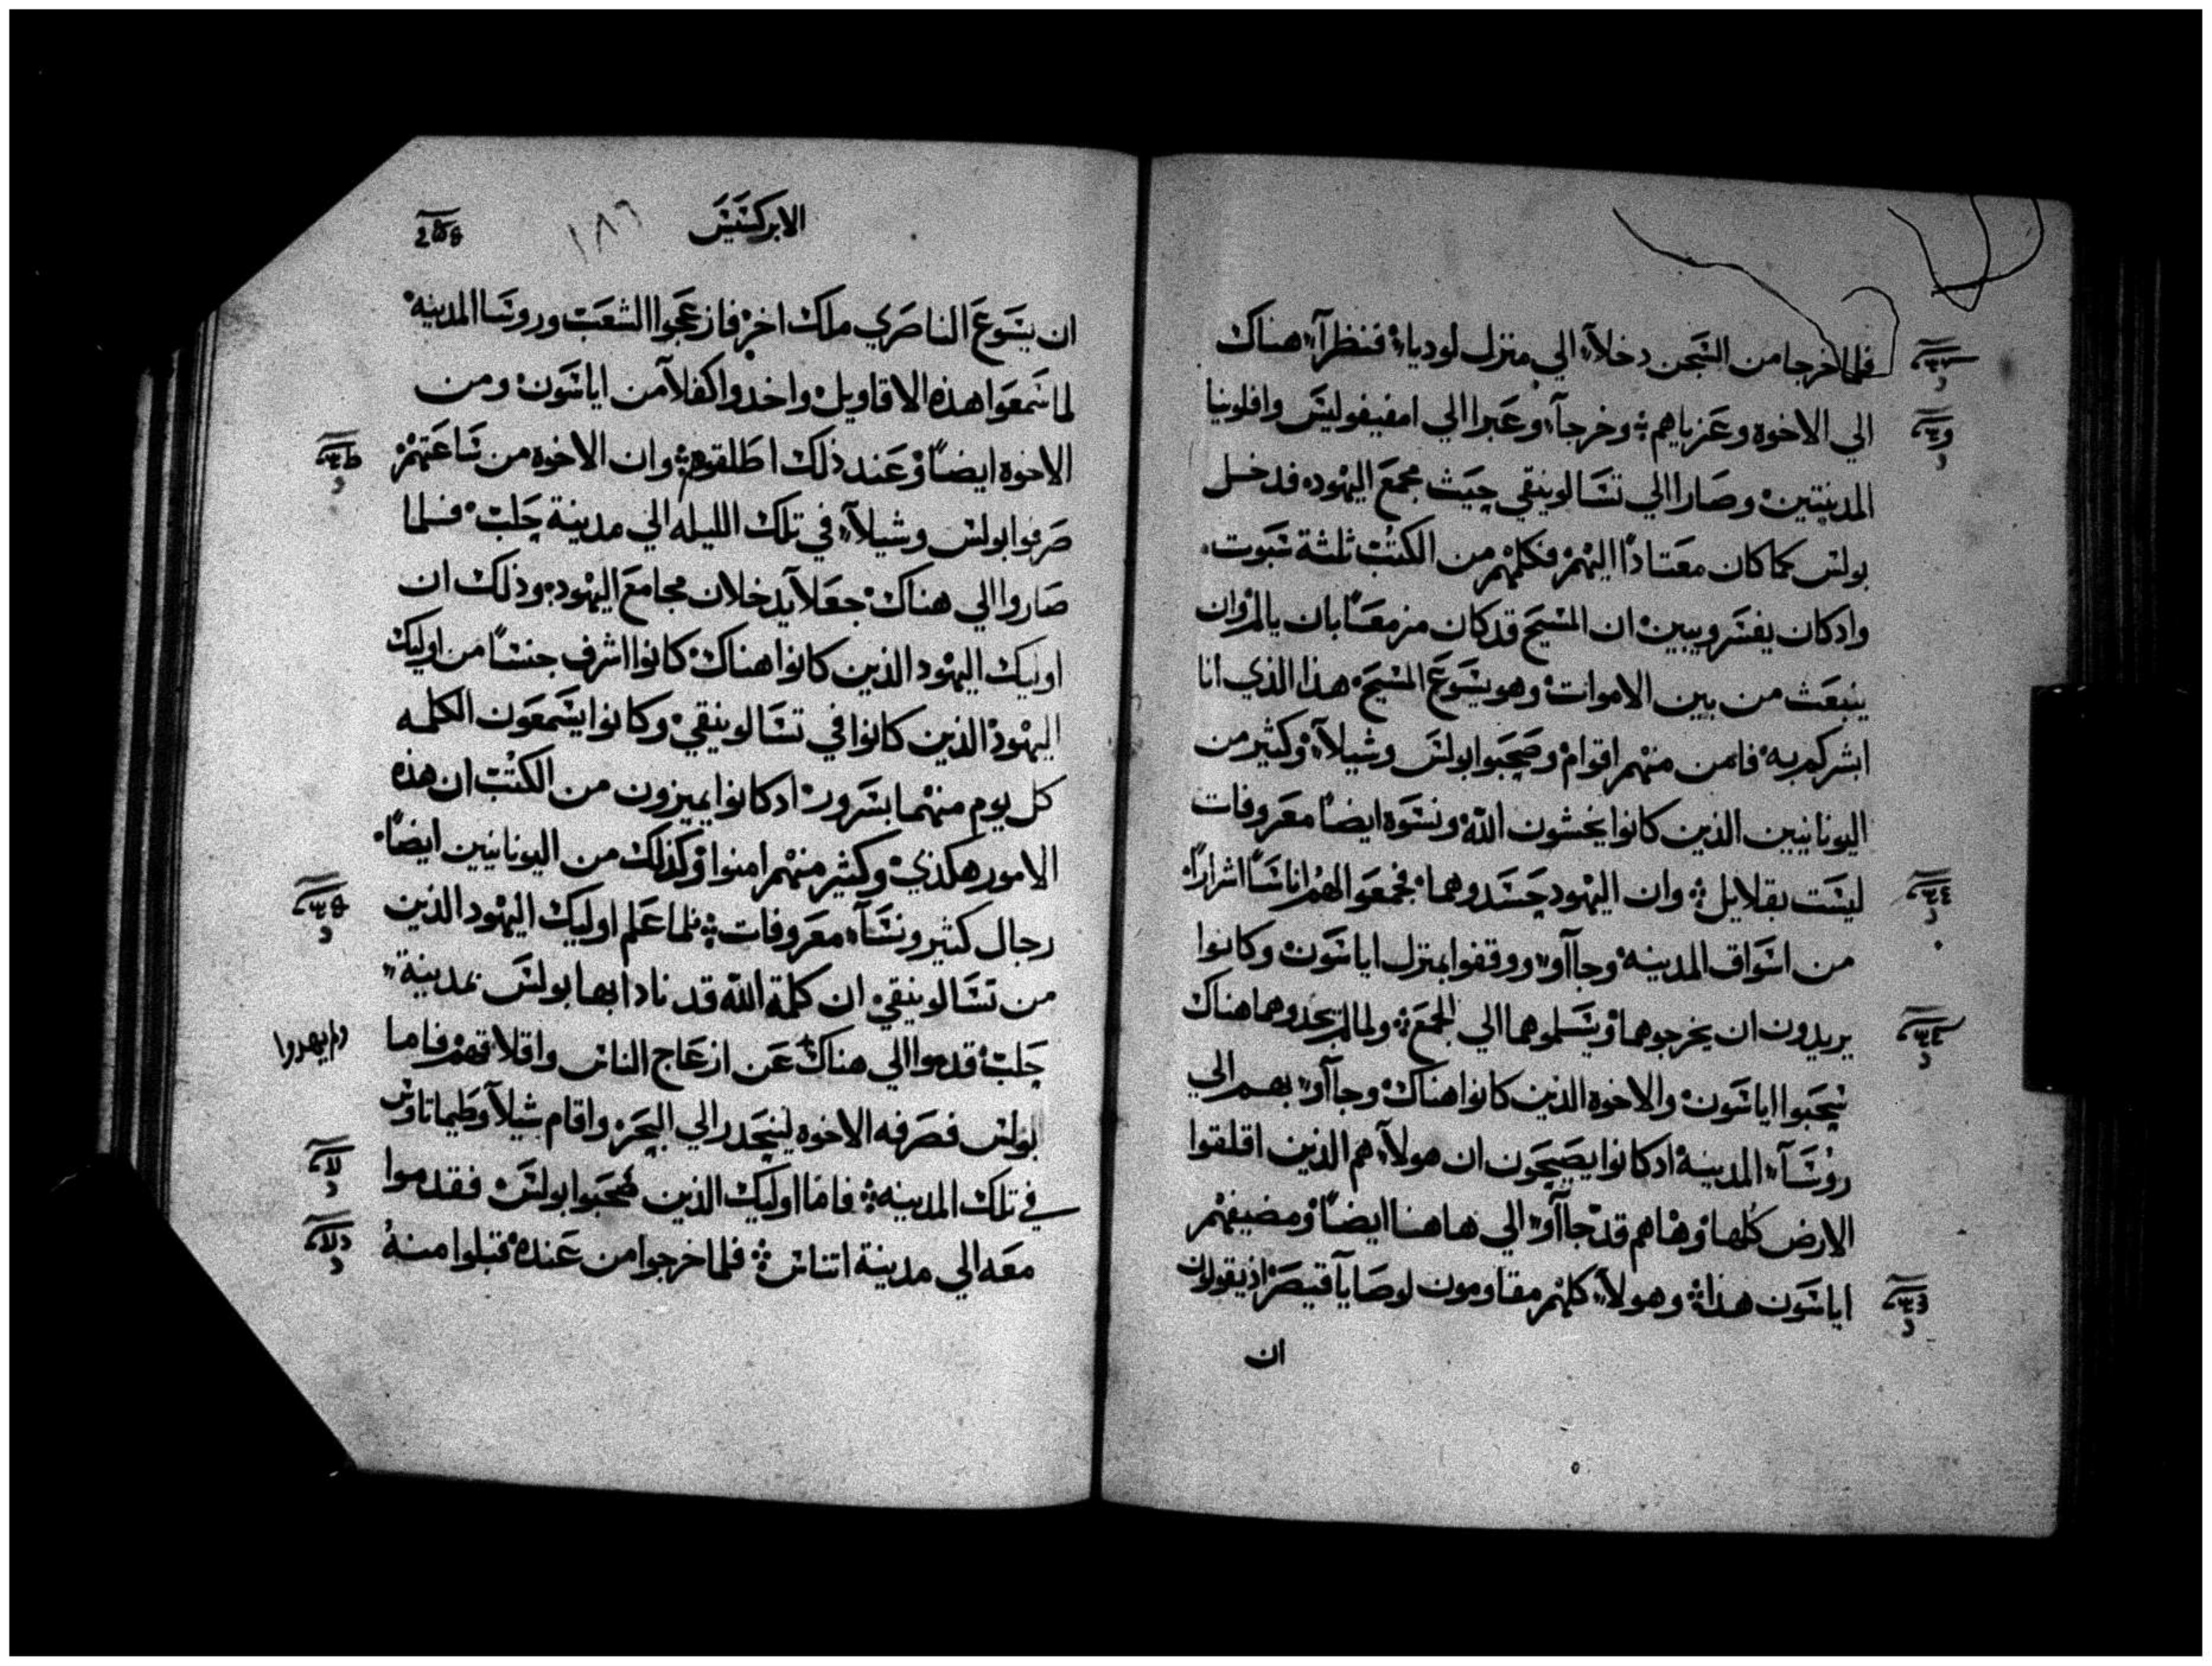 فلما خرجا من السجن دخلآ الي منزل لوديا فنظرآ هناك
الي الاخوة وعزياهم وخرجآ وعبرا الي امفيفوليس وافلونيا
المدينتين وصارا الي تسالونيقي حيث مجمع اليهود فدخل
بولس كما كان معتادًا اليهم فكلمهم من الكتب ثلثة سبوت
واد كان يفسر ويبين ان المسيح قد كان مزمعًا بان يالم وان
ينبعث من بين الاموات وهو يسوع المسيح هذا الذي انا
ابشركم به فامن منهم اقوام وصحبوا بولس وشيلآ وكثير من
اليونانيين الذين كانوا يخشون الله ونسوة ايضًا معروفات
ليست بقلايل وان اليهود حسدوهما فجمعوا لهم اناسًا اشرارًا
من اسواق المدينه وجاآو ووقفوا بمنزل اياسون وكانوا
يريدون ان يخرجوهما ويسلموهما الي الجمع ولما لم يجدوهما هناك
سحبوا اياسون والاخوة الذين كانوا هناك وجاآو بهم الي
روسآ المدينة ادكانوا يصيحون ان هولآ هم الذين اقلقوا
الارض كلها وهاهم قد جاآو الي هاهنا ايضًا ومضيفهم
اياسون هذا وهولآ كلهم مقاومون لوصايآ قيصر اذ يقولون
ان
الابركسيس
١٨٦
ان يسوع الناصري ملك اخر فازعجوا الشعب وروسا المدينه
لما سمعوا هذه الاقاويل واخدوا كفلآ من اياسون ومن
الاخوة ايضًا وعند ذلك اطلقوهم وان الاخوة من ساعتهم
صرفوا بولس وشيلآ في تلك الليله الي مدينة حلب فلما
صاروا الي هناك جعلآ يدخلان مجامع اليهود وذلك ان
اوليك اليهود الذين كانوا هناك كانوا اشرف جنسًا من اوليك
اليهود الذين كانوا في تسالونيقي وكانوا يسمعون الكلمه
كل يوم منهما بسرور ادكانوا يميزون من الكتب ان هذه
الامور هكذي وكثير منهم امنوا وكذلك من اليونانيين ايضًا
رجال كثير ونسآ معروفات فلما علم اوليك اليهود الذين
من تسالونيقي ان كلمة الله قد نادا بها بولس بمدينة
حلب قدموا الي هناك عن ازعاج الناس واقلاقهم فاما
ولم يهدوا
بولس فصرفه الاخوه لينحدر الي البحر واقام شيلآ وطيماتاوس
في تلك المدينه فاما اوليك الذين صحبوا بولس فقدموا
معه الي مدينة اتناس فلما خرجوا من عنده قبلوا منهُ